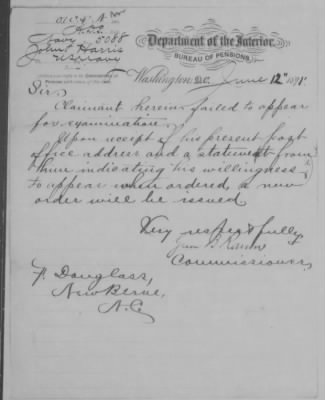 Navy 5088
John Harris
US Navy
Department of the Interior,
BUREAU OF PENSIONS,
Washington, D.C., June 12" 189
Sir,
Claimant herein failed to appear
for examination.
Upon receipt of his present post
office address and a statement from
him indicating his willingness
to appear when ordered, a new
order will be issued.
Very respectfully
Commissioner.
F. Douglass,
New Berne,
N.C.